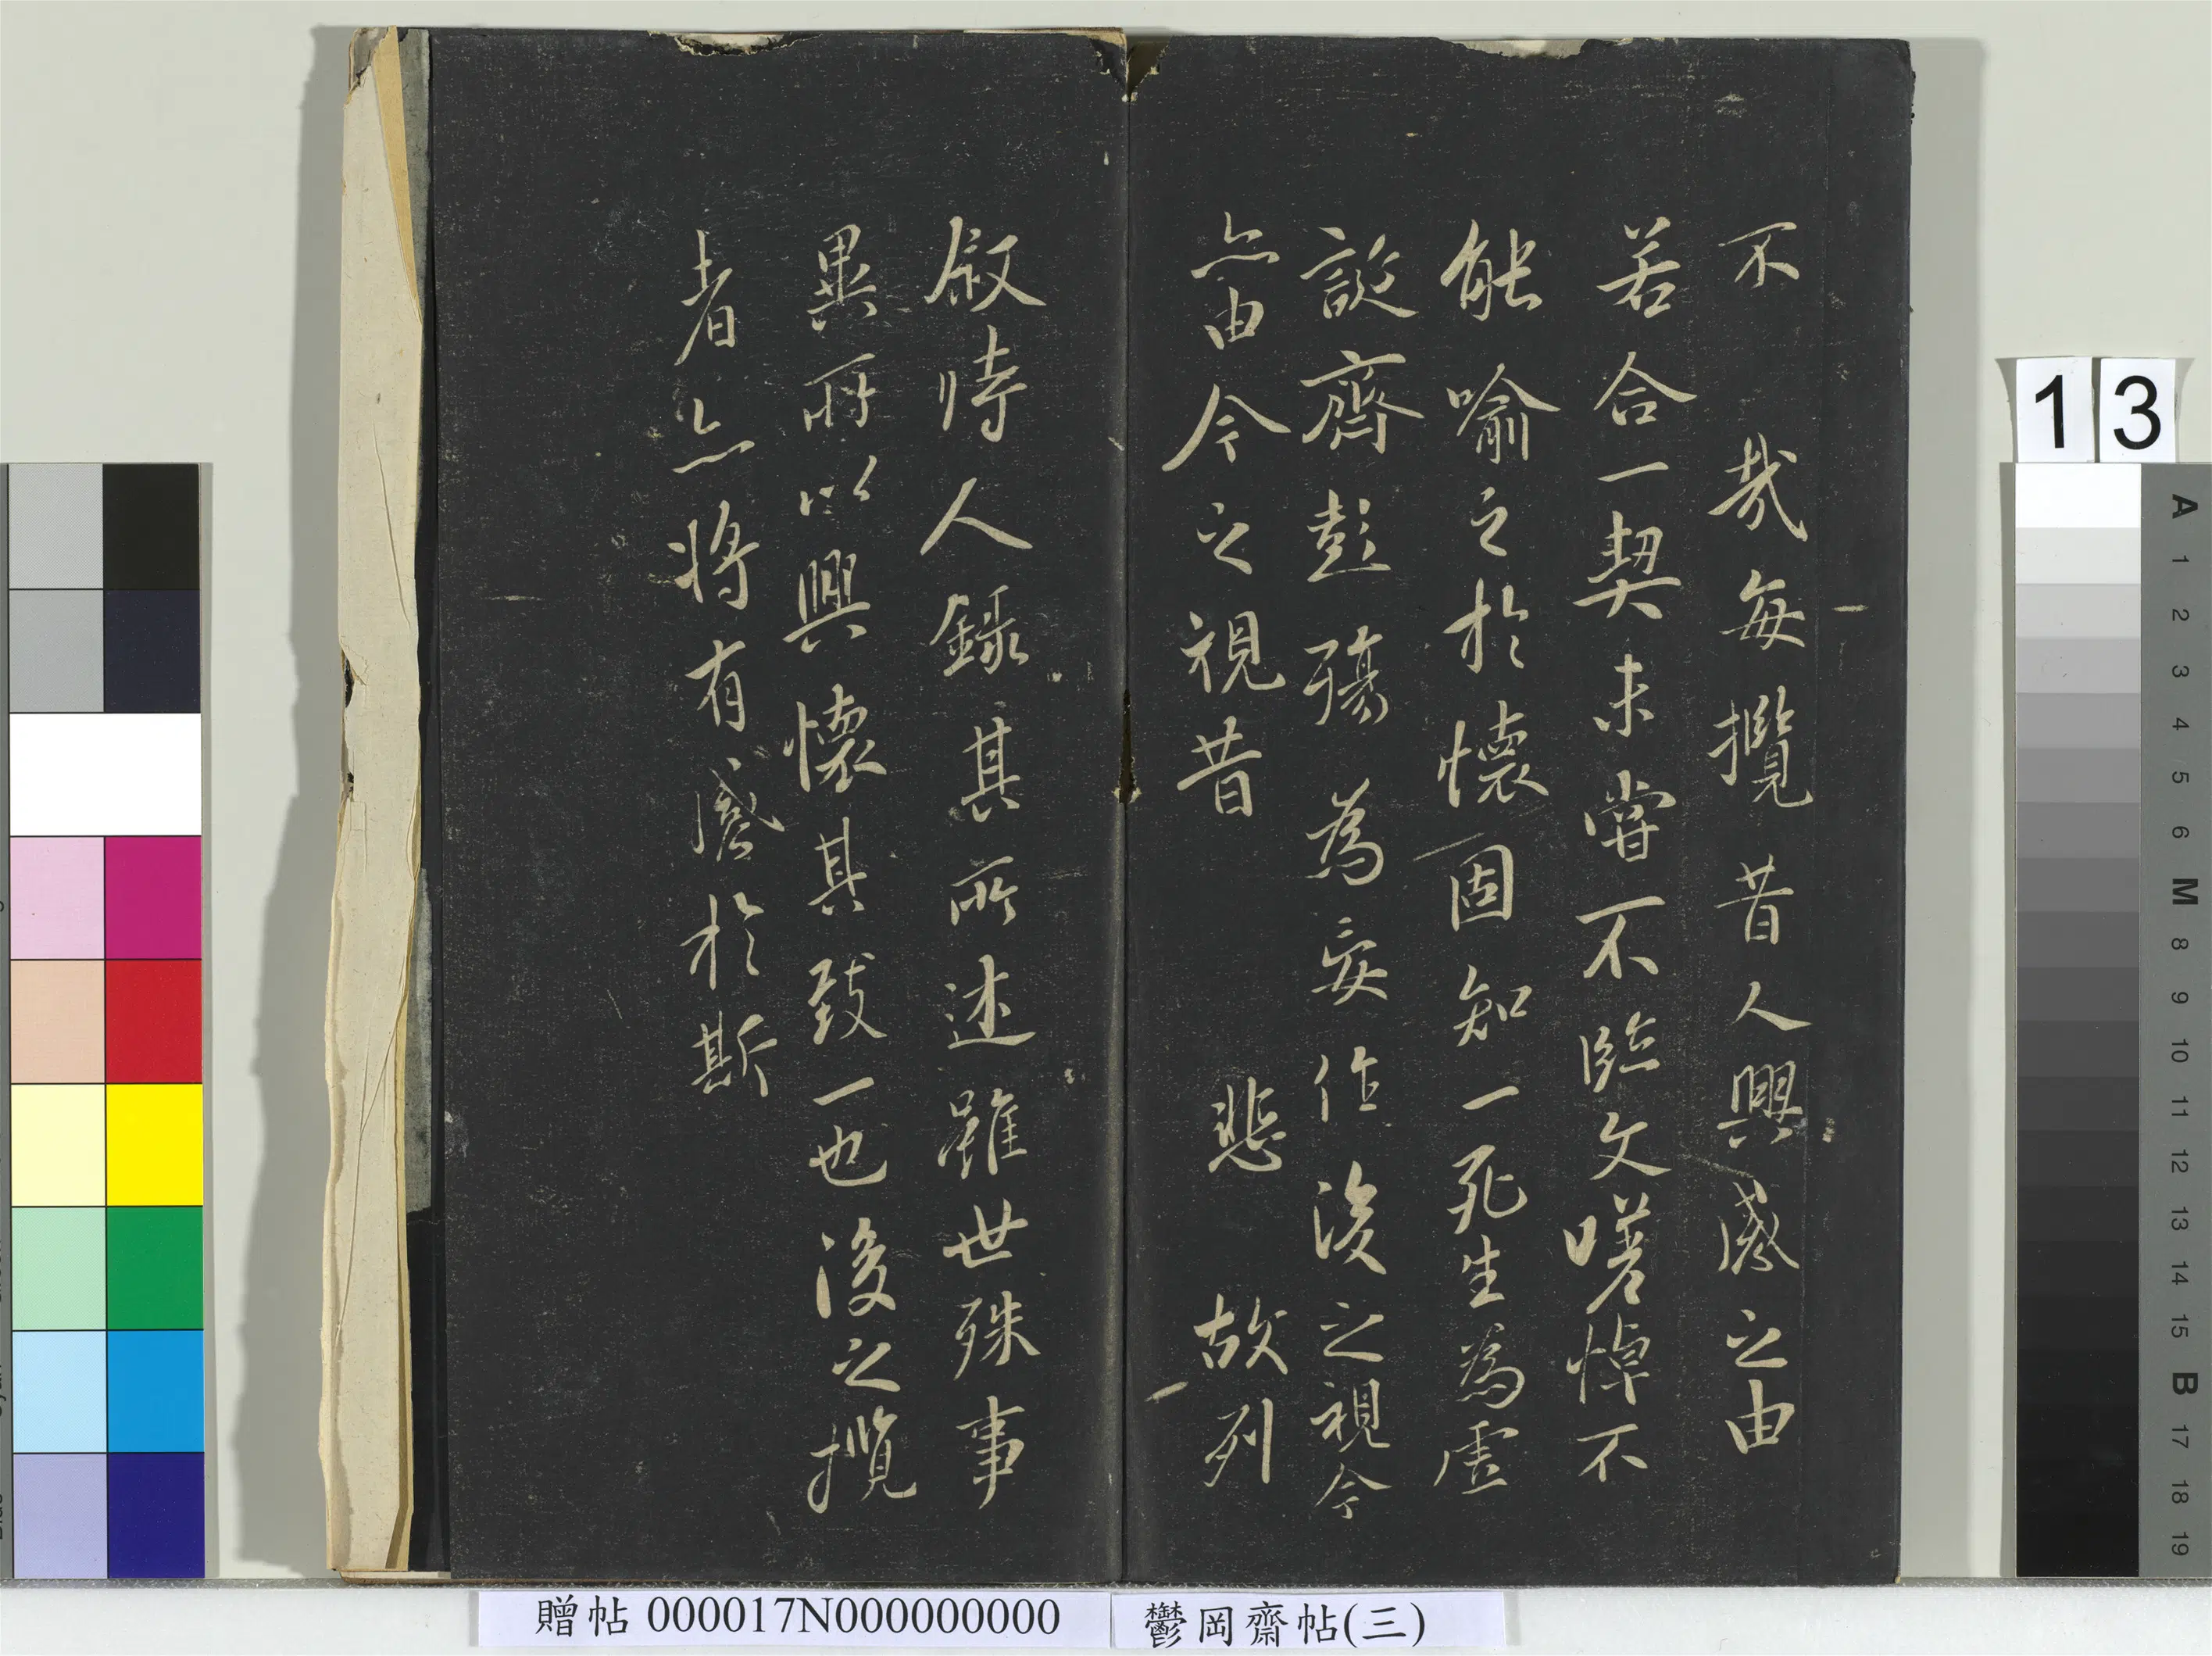 不 哉每攬昔人興感之由
若合一契未甞不臨文嗟悼不
能喻之於懷固知一死生為虛
誕齊彭殤為妄作後之視今
亦由今之視昔 悲 故列
叙時人錄其所述雖世殊事
異所以興懷其致一也後之攬
者亦將有感於斯
贈帖 000017N000000000
鬱岡齋帖(三)
13
A 1 2 3 4 5 6 M 8 9 10 11 12 13 14 15 B 17 18 19